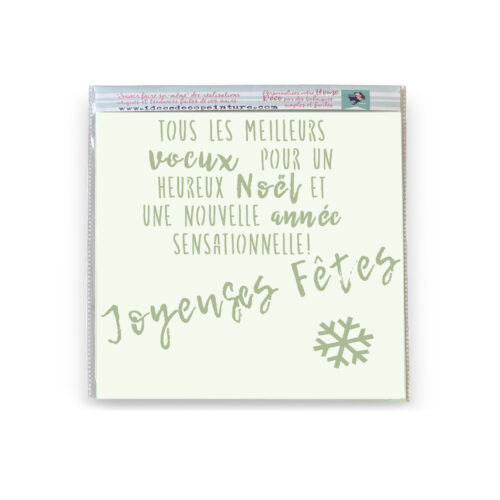 "Savoir faire soi-même" des réalisations
uniques et tendances faciles de vos mains.
www.ideesdecopeinture.com
Personnalisez votre Home
Déco par des techniques
simples et faciles
TOUS LES MEILLEURS
voeux POUR UN
HEUREUX Noël ET
UNE NOUVELLE année
SENSATIONNELLE!
Joyeuses Fêtes